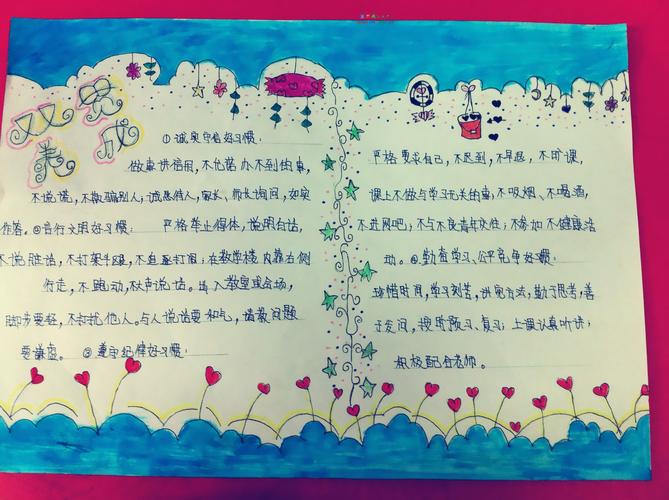 双思
美成
①诚实守信好习惯：
做事讲信用，不允诺办不到的事，
不说谎，不欺骗别人；诚恳待人，家长、师长询问，如实
作答。②言行文明好习惯： 严格举止得体，说明白话，
不说脏话，不打架斗殴，不追逐打闹；在教学楼内靠右侧
行走，不跑动，不大声说话。进入教室或会场，
脚步要轻，不打扰他人。与人说话要和气，请教问题
要谦虚。③遵守纪律好习惯：
严格要求自己，不迟到，不早退，不旷课，
课上不做与学习无关的事；不吸烟、不喝酒，
不进网吧；不与不良青年交往；不参加不健康活
动。④勤奋学习、公平竞争好习惯：
珍惜时间，学习刻苦，讲究方法；勤于思考，善
于发问，按时预习、复习；上课认真听讲；
积极配合老师。